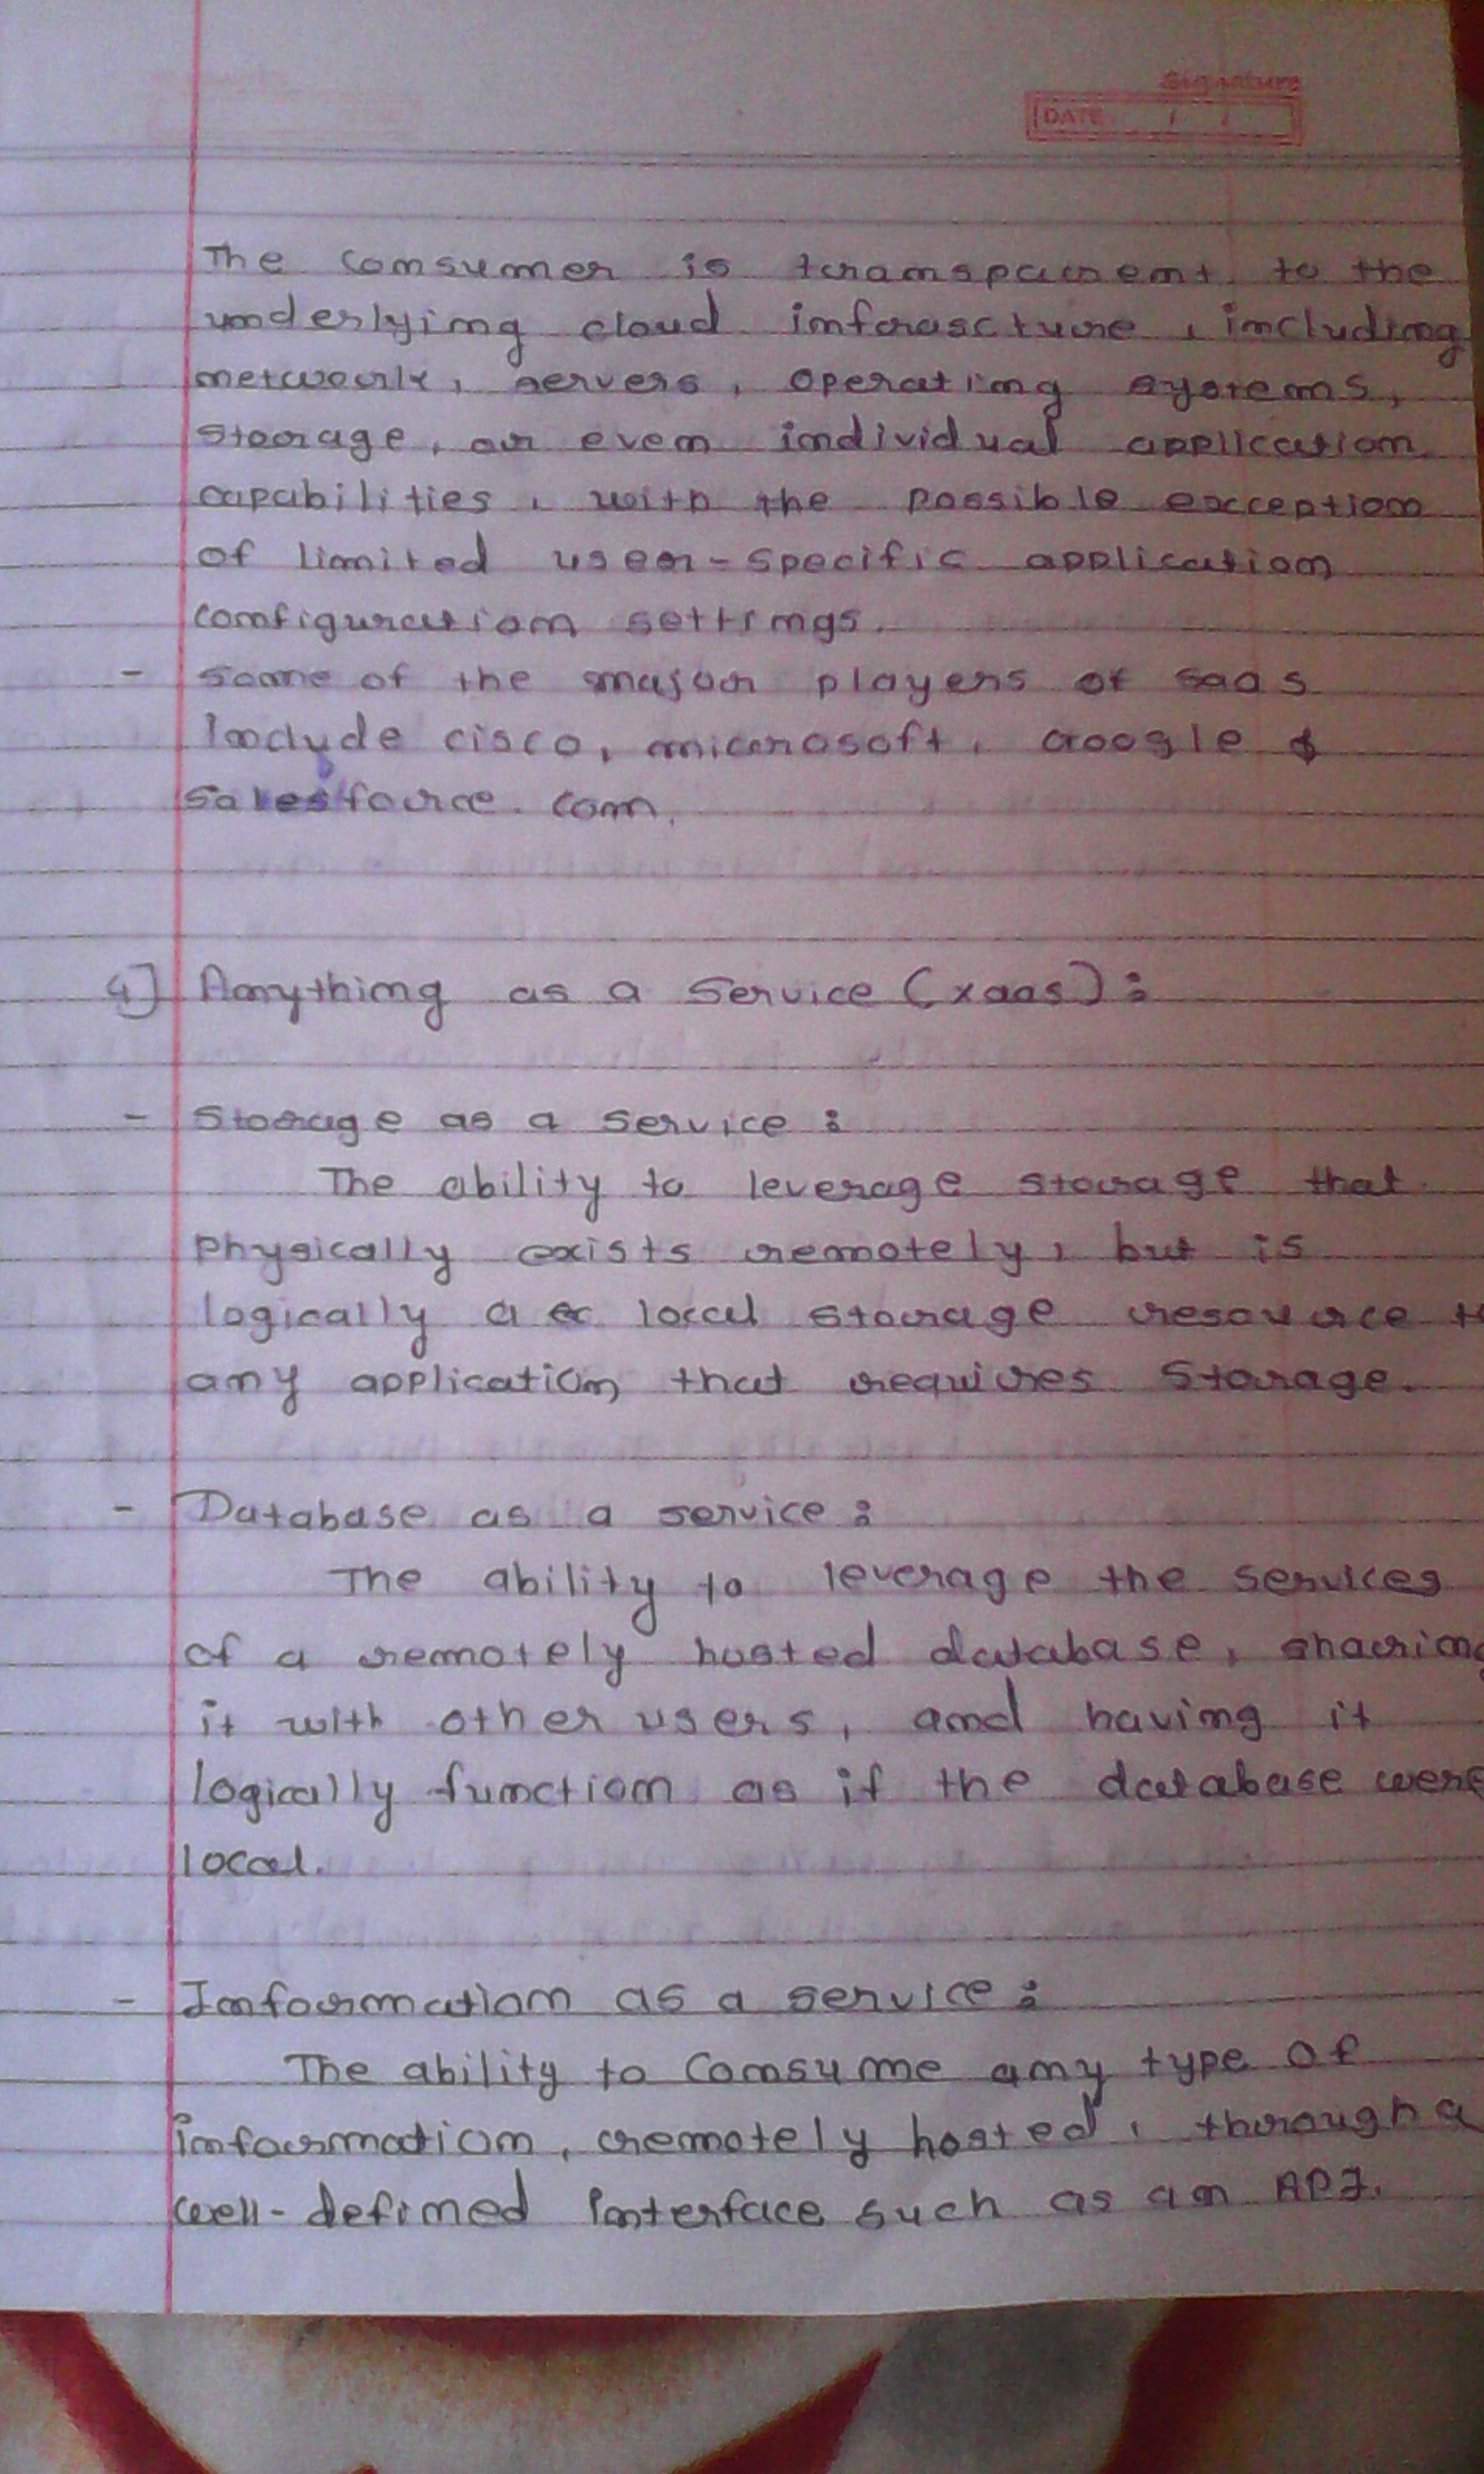 Signature
DATE / /
The consumer is transparent to the
underlying cloud infrascture, including
network, servers, operating systems,
storage, or even individual application
capabilities, with the possible exception
of limited user-specific application
configuration settings.
- Some of the major players of SaaS
include cisco, microsoft, Google &
Salesforce.com.
4] Anything as a Service (xaas):
- Storage as a service:
The ability to leverage storage that
physically exists remotely, but is
logically a local storage resource t
any application that requires storage.
- Database as a service:
The ability to leverage the services
of a remotely hosted database, sharing
it with other users, and having it
logically function as if the database were
local.
- Information as a service:
The ability to consume any type of
information, remotely hosted, through a
well-defined interface such as an API.